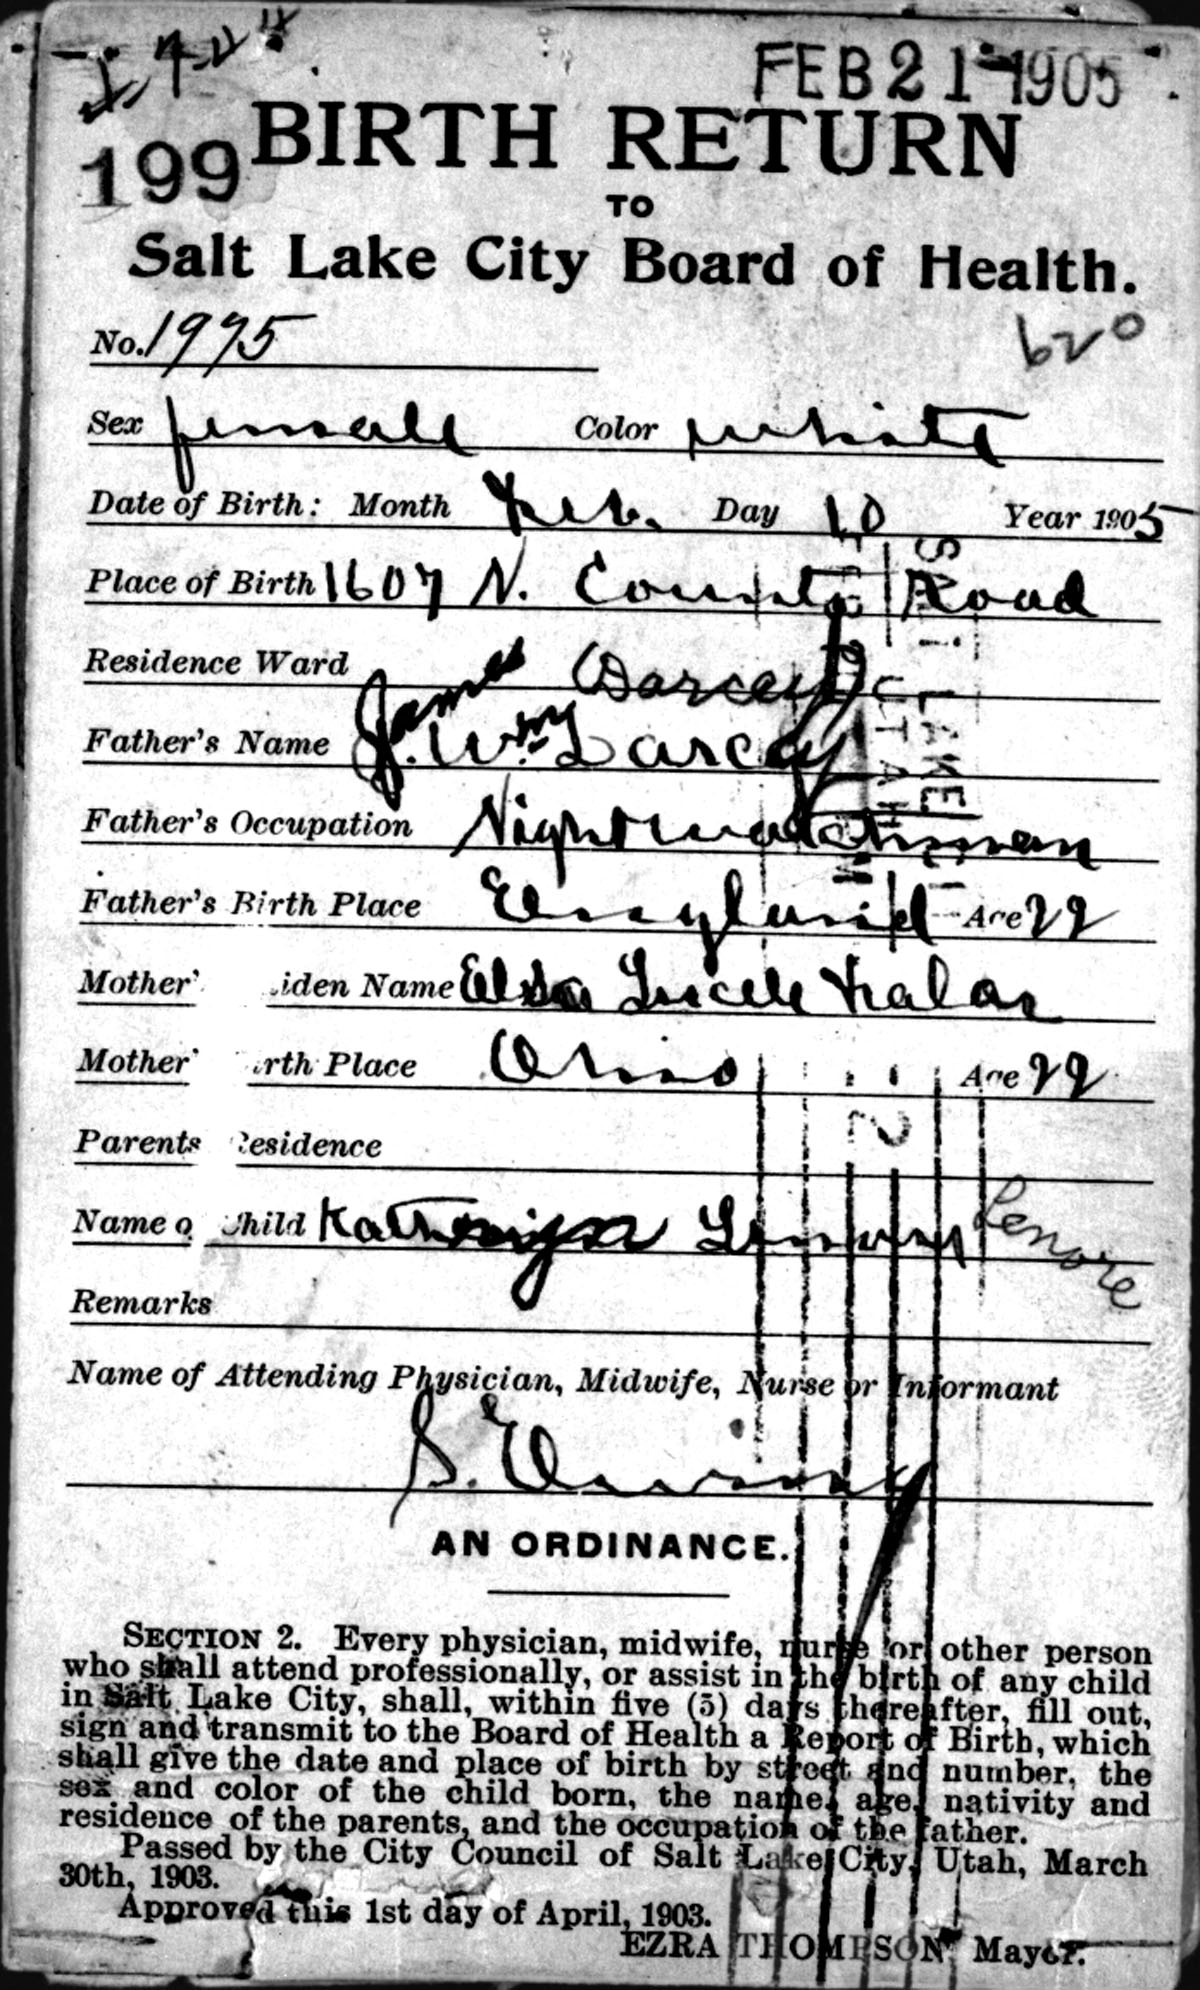 FEB 21 1905
199 BIRTH RETURN
TO
Salt Lake City Board of Health.
No. 1975
620
Sex female Color white
Date of Birth: Month Feb. Day 10 Year 1905
Place of Birth 1607 N. County Road
Residence Ward
James Darcey
Father's Name J. Wm Darcey
Father's Occupation Nightwatchman
Father's Birth Place England Age 22
Mother' iden Name Elsa Lucele
Mother' rth Place Ohio Age 22
Parents Residence
Name o Child Katheryn Lenore
Remarks
Name of Attending Physician, Midwife, Nurse or Informant
S. Ewing
AN ORDINANCE.
SECTION 2. Every physician, midwife, nurse or other person
who shall attend professionally, or assist in the birth of any child
in Salt Lake City, shall, within five (5) days thereafter, fill out,
sign and transmit to the Board of Health a Report of Birth, which
shall give the date and place of birth by street and number, the
sex and color of the child born, the name, age, nativity and
residence of the parents, and the occupation of the father.
Passed by the City Council of Salt Lake City, Utah, March
30th, 1903.
Approved this 1st day of April, 1903.
EZRA THOMPSON Mayor.